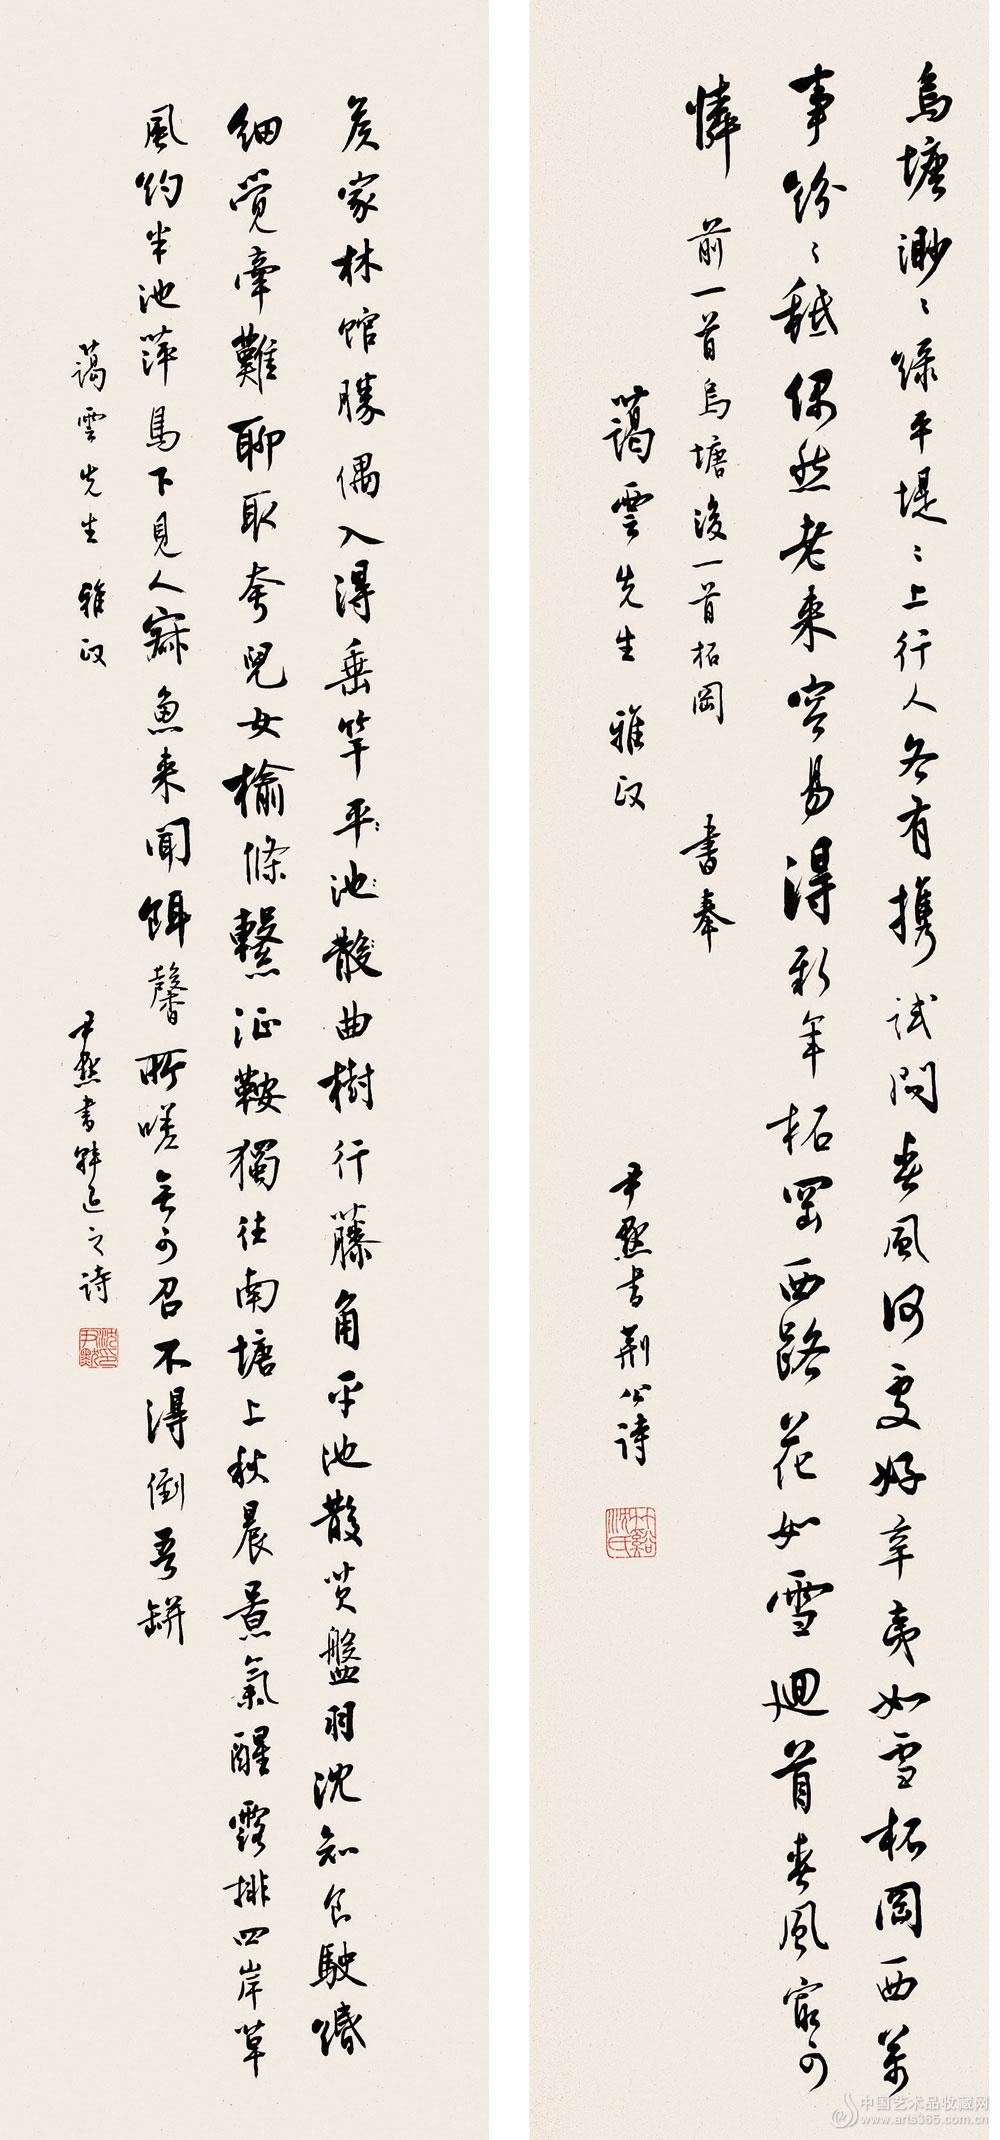 烏塘渺〻綠平堤〻上行人各有攜試問春風何處好辛夷如雪柘岡西萬
事紛〻秪偶然老來容易得新年柘岡西路花如雪迴首春風最可
憐 前一首烏塘後一首柘岡 書奉
藹雲先生 雅政 尹默書荊公詩
竹谿沈氏
侯家林館勝偶入得垂竿平池散曲樹行藤角平池散芡盤羽沈知食駛緡
細覺牽難聊取夸兒女榆條繫征鞍獨往南塘上秋晨景氣醒露排四岸草
風約半池萍鳥下見人寂魚來聞餌馨所嗟無可召不得倒吾缾
藹雲先生 雅政 尹默書韓退之詩
沈尹默印
中国艺术品收藏网
www.arts365.com.cn